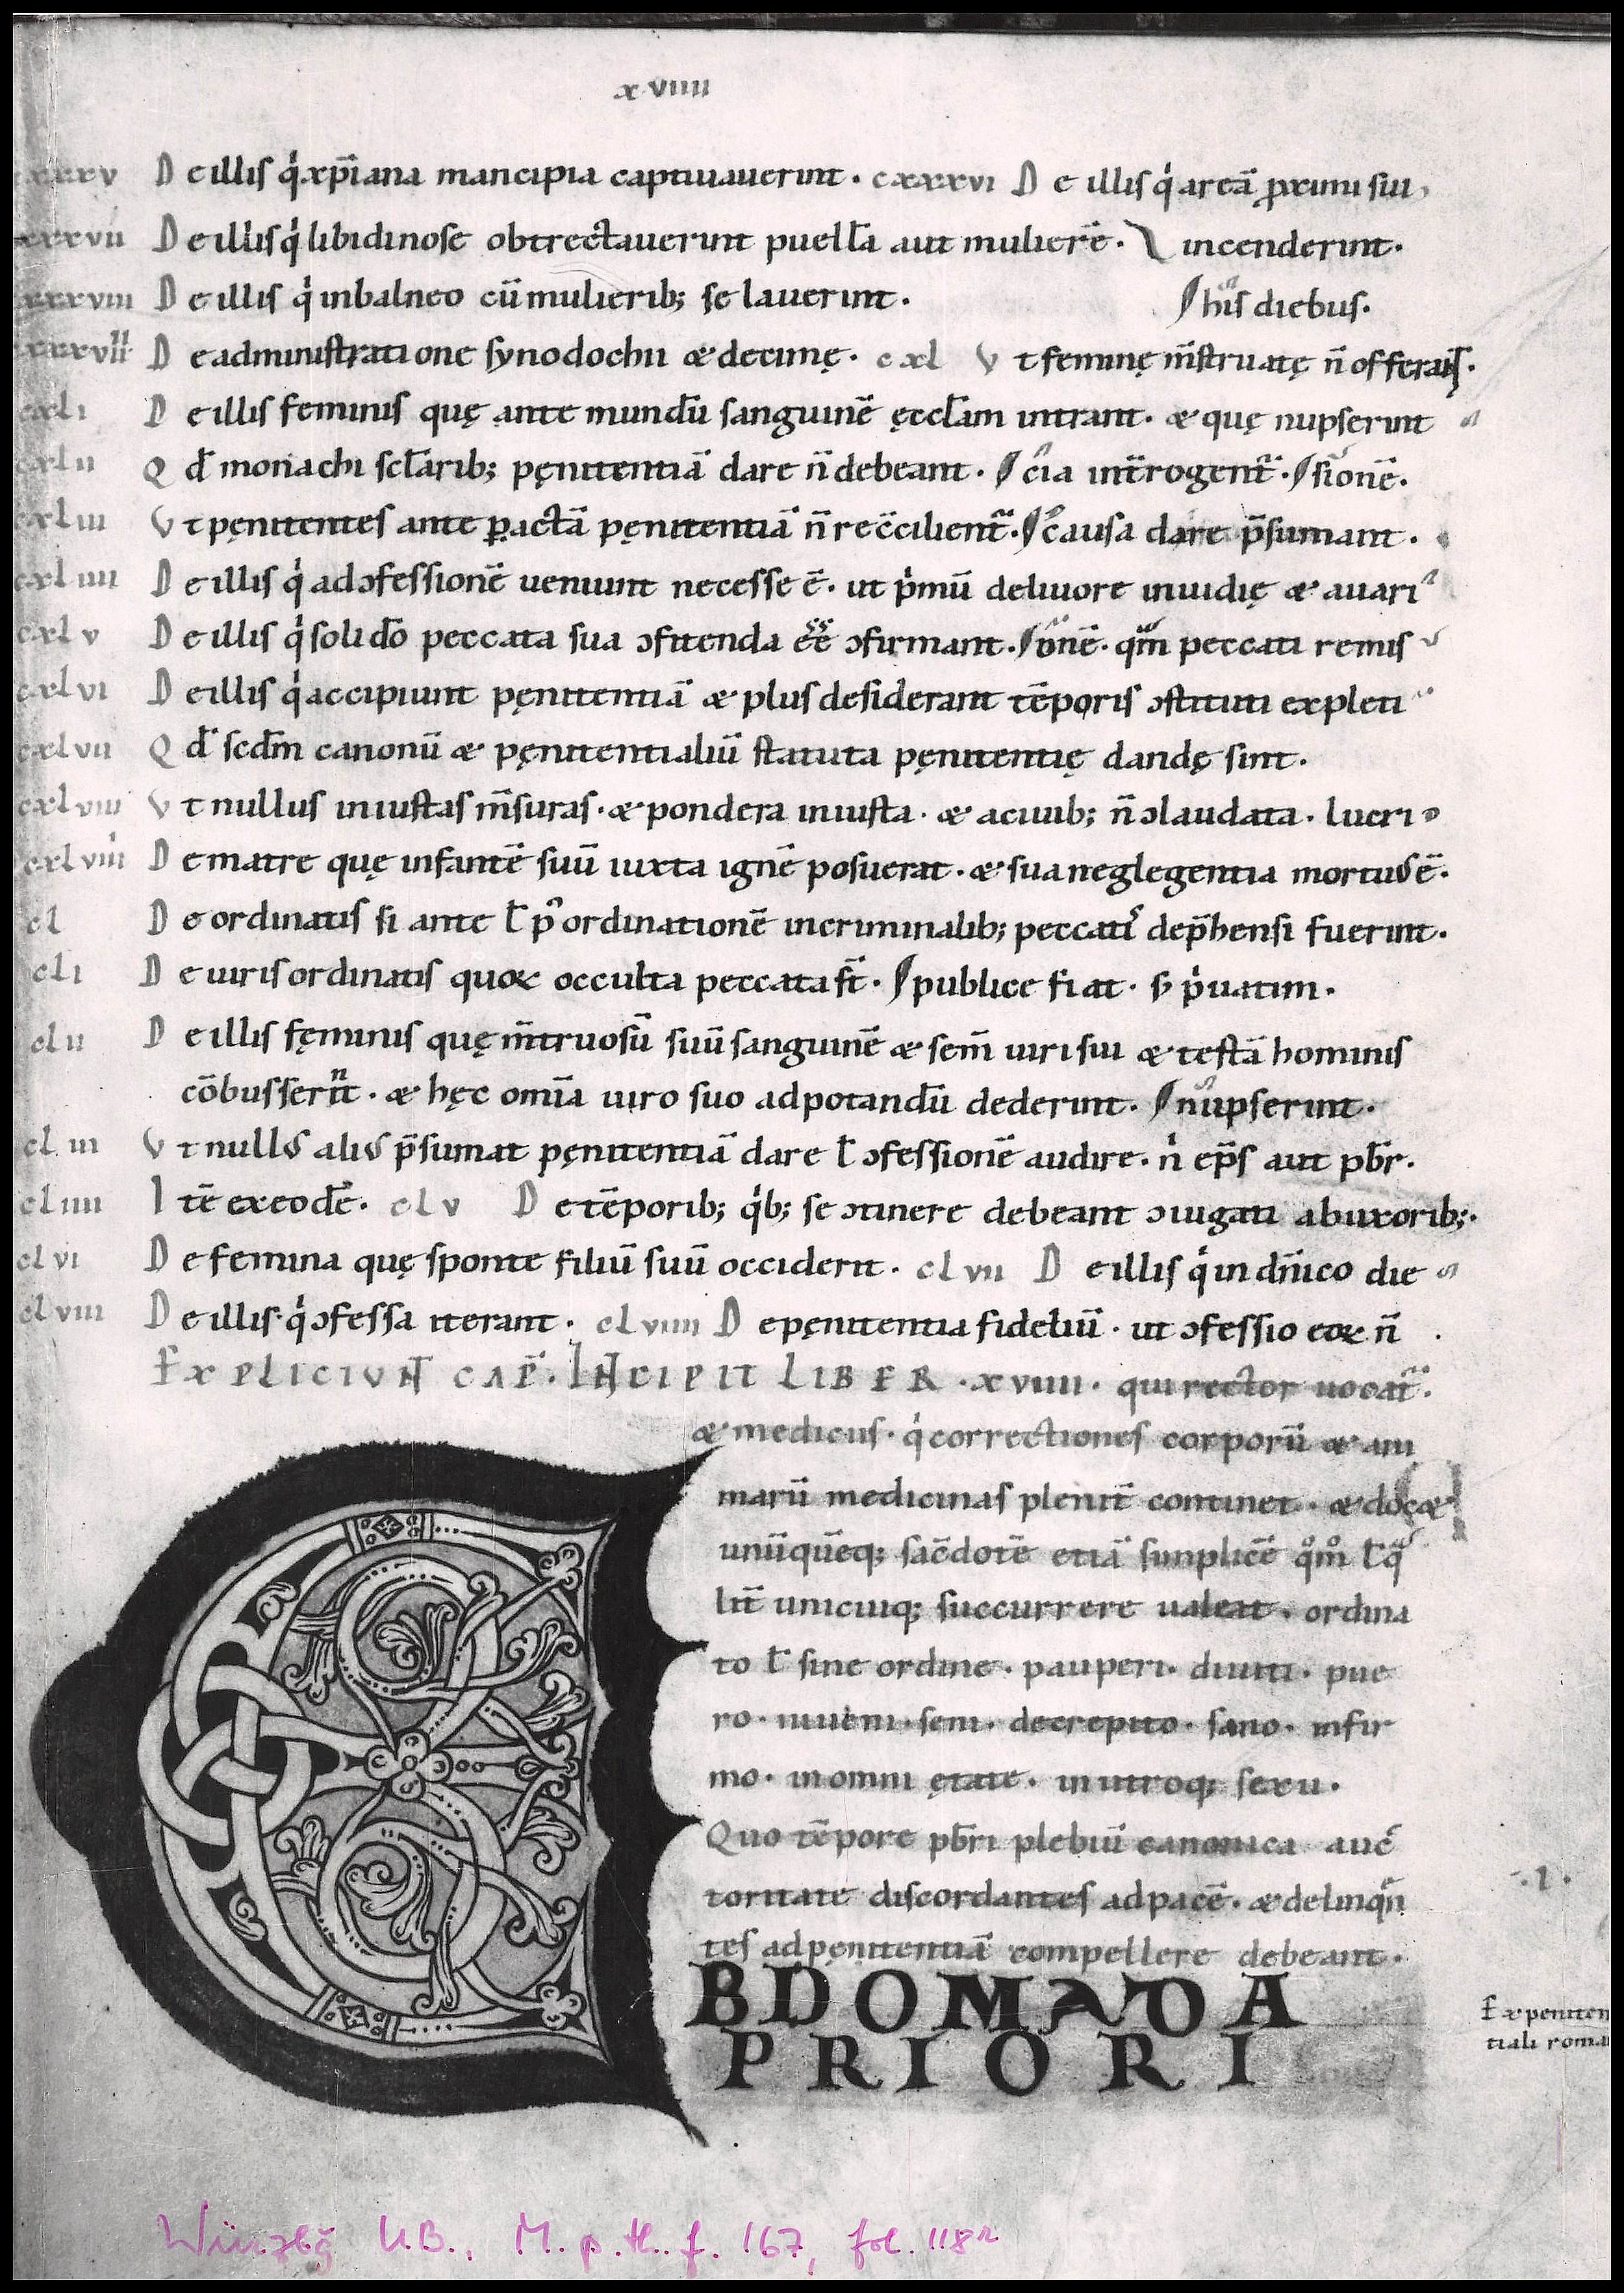 xviiii
cxxxv D e illis q̇ xp̄iana mancipia captiuauerint. cxxxvi D e illis q̇ areā ꝓximi sui
cxxxvii D e illis q̇ libidinose obtrectauerint puellā aut mulierē. incenderint.
cxxxviii D e illis q̇ in balneo cū mulierib; se lauerint. his diebus.
cxxxviiii D e administratione synodochii & decimę. cxl V t feminę m̄struatę n̄ offerant
cxli D e illis feminis quę ante mundū sanguinē ęccl̄am intrant. & quę nupserint
cxlii Q d̄ monachi scl̄arib; pęnitentiā dare n̄ debeant. cia int̄rogent̄. sionē.
cxliii V t pęnitentes ante ꝑactā pęnitentiā n̄ rec̄cilient̄. causa dare p̄sumant.
cxliiii D e illis q̇ ad ɔfessionē ueniunt necesse ē. ut p̍mū de liuore inuidię & auari
cxlv D e illis q̇ soli dō peccata sua ɔfitenda ēē ɔfirmant. onē. qm̄ peccati remis
cxlvi D e illis q̇ accipiunt pęnitentiā & plus desiderant tēporis ɔstituti expleti
cxlvii Q d̄ scdm̄ canonū & pęnitentialiū statuta pęnitentię dandę sint.
cxlviii V t nullus iniustas m̄suras. & pondera iniusta. & acuub; n̄ ɔlaudata. lucri
cxlviiii D e matre quę infantē suū iuxta ignē posuerat. & sua neglegentia mortuꝰ ē.
cl D e ordinatis si ante ł p̓ ordinationē in criminalib; peccatis dep̄hensi fuerint.
cli D e uiris ordinatis quoꝝ occulta peccata st̄. publice fiat. s; p̍uatim.
clii D e illis fęminis quę m̄truosū suū sanguinē & sem̄ uiri sui & testā hominis
cōbusserint. & hęc omīa uiro suo ad potandū dederint. nupserint.
cliii V t nullꝰ aliꝰ p̄sumat pęnitentiā dare ł ɔfessionē audire. n̍ ep̄s aut pb̄r.
cliiii I tē ex eodē. clv D e tēporib; q̍b; se ɔtinere debeant ɔiugati ab uxorib;.
clvi D e femina quę sponte filiū suū occiderit. clvii D e illis q̇ in dn̄ico die
clviii D e illis. q̇ ɔfessa iterant. clviiii D e pęnitentia fideliū. ut ɔfessio eoꝝ n̄
EXPLICIUNT CAP̄. INCIPIT LIBER. xviiii. qui rector uocat̄.
& medicus. q̇ correctiones corporū & ani
marū medicinas plenit̄ continet. & doc&
unūquēq; sac̄dotē etiā simplicē q̊m̊ ł qa
lit̄ unicuiq; succurrere ualeat. ordina
to ł sine ordine. pauperi. diuiti. pue
ro. iuueni. seni. decrepito. sano. infir
mo. in omni ętate. in utroq; sexu.
Quo tēpore pb̄ri plebiū canonica auc
toritate discordantes ad pacē. & delinqn̄
tes ad pęnitentiā compellere debeant.
.i.
EBDOMADA
PRIORI
Ex peniten
tiali roma
Würzbg UB., M. p. th. f. 167, fol. 118r